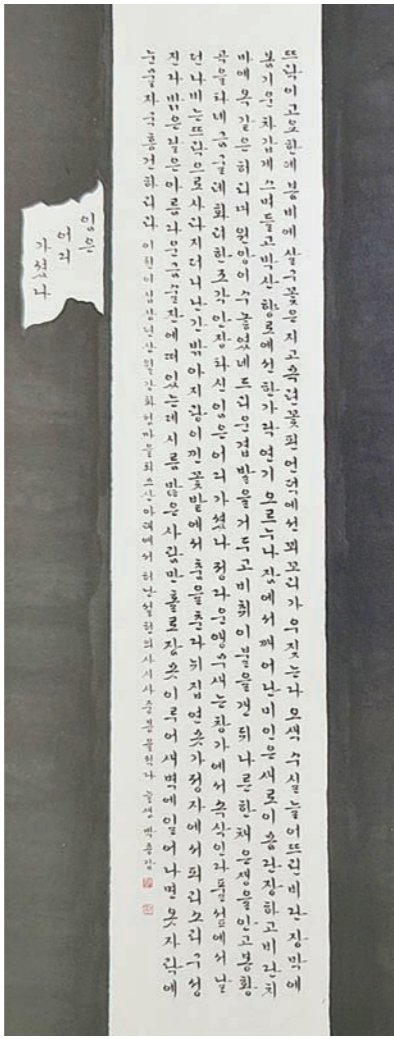 뜨락이 고요한데 봄비에 살구꽃은 지고 목련꽃 핀 언덕에선 꾀꼬리가 우짖는다 오색 수실 늘어뜨린 비단 장막에
봄기운 차갑게 스며들고 박산 향로에선 한가닥 연기 오르누나 잠에서 깨어난 미인은 새로이 몸단장하고 비단 치
마에 옥 같은 허리띠 원앙이 수놓였네 드리운 겹발을 거두고 비취 이불을 갠 뒤 나른한 채 은쟁을 안고 봉황
곡을 타네 금굴레 화려한 조각 안장 타신 임은 어디 가셨나 정다운 앵무새는 창가에서 속삭인다 풀섶에서 날
던 나비는 뜨락으로 사라지더니 난간 밖 아지랑이 낀 꽃밭에서 춤을 춘다 뉘 집 연못가 정자에서 피리소리 구성
진가 밝은 달은 아름다운 금술잔에 떠 있는데 시름 많은 사람만 홀로 잠 못 이루어 새벽에 일어나면 옷자락에
눈물자국 흥건하리라 이천이십삼년 강화 아래에서 허난설헌의 사시사 중 봄을 적다 늘샘 박종갑
임은
어디
가셨나